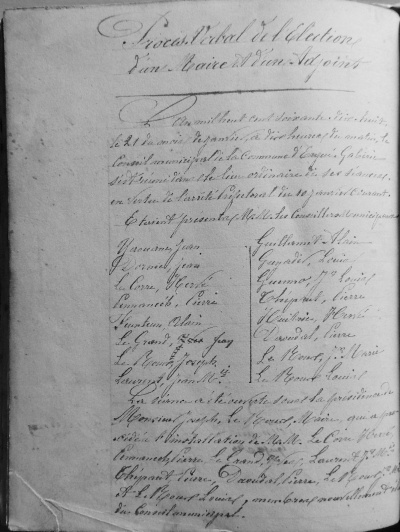 Procès Verbal de l'Election
d'un Maire et d'un Adjoint
L'an mil huit cent soixante dix huit
le 21 du mois de janvier, à dix heures du matin, le
Conseil municipal de la Commune d'Ergué Gabéric
s'est réuni dans le lieu ordinaire de ses séances
en vertu de l'arrêté Préfectoral du 10 janvier courant.
Etaient présents MM. les Conseillers municipaux
Jean
jean
Le Corre, Hervé
Pierre
Alain
Le Grand,
Le Roux, Joseph
Laurent, jean M.
Guillamet Alain
Louis
Jn Louis
Thépaut, Pierre
Huitric, Hervé
Daoudal, Pierre
Le Roux, Jn Marie
Le Roux Louis
La séance a été ouverte sous la présidence de
Monsieur Joseph, Le Roux, Maire, qui a pro
cédé à l'installation de MM. Le Corre Hervé
Pierre Le Grand, Laurent
Thépaut Pierre, Daoudal, Pierre, Le Roux, Jn M
et Le Roux Louis, membres nouvellement
du Conseil municipal.